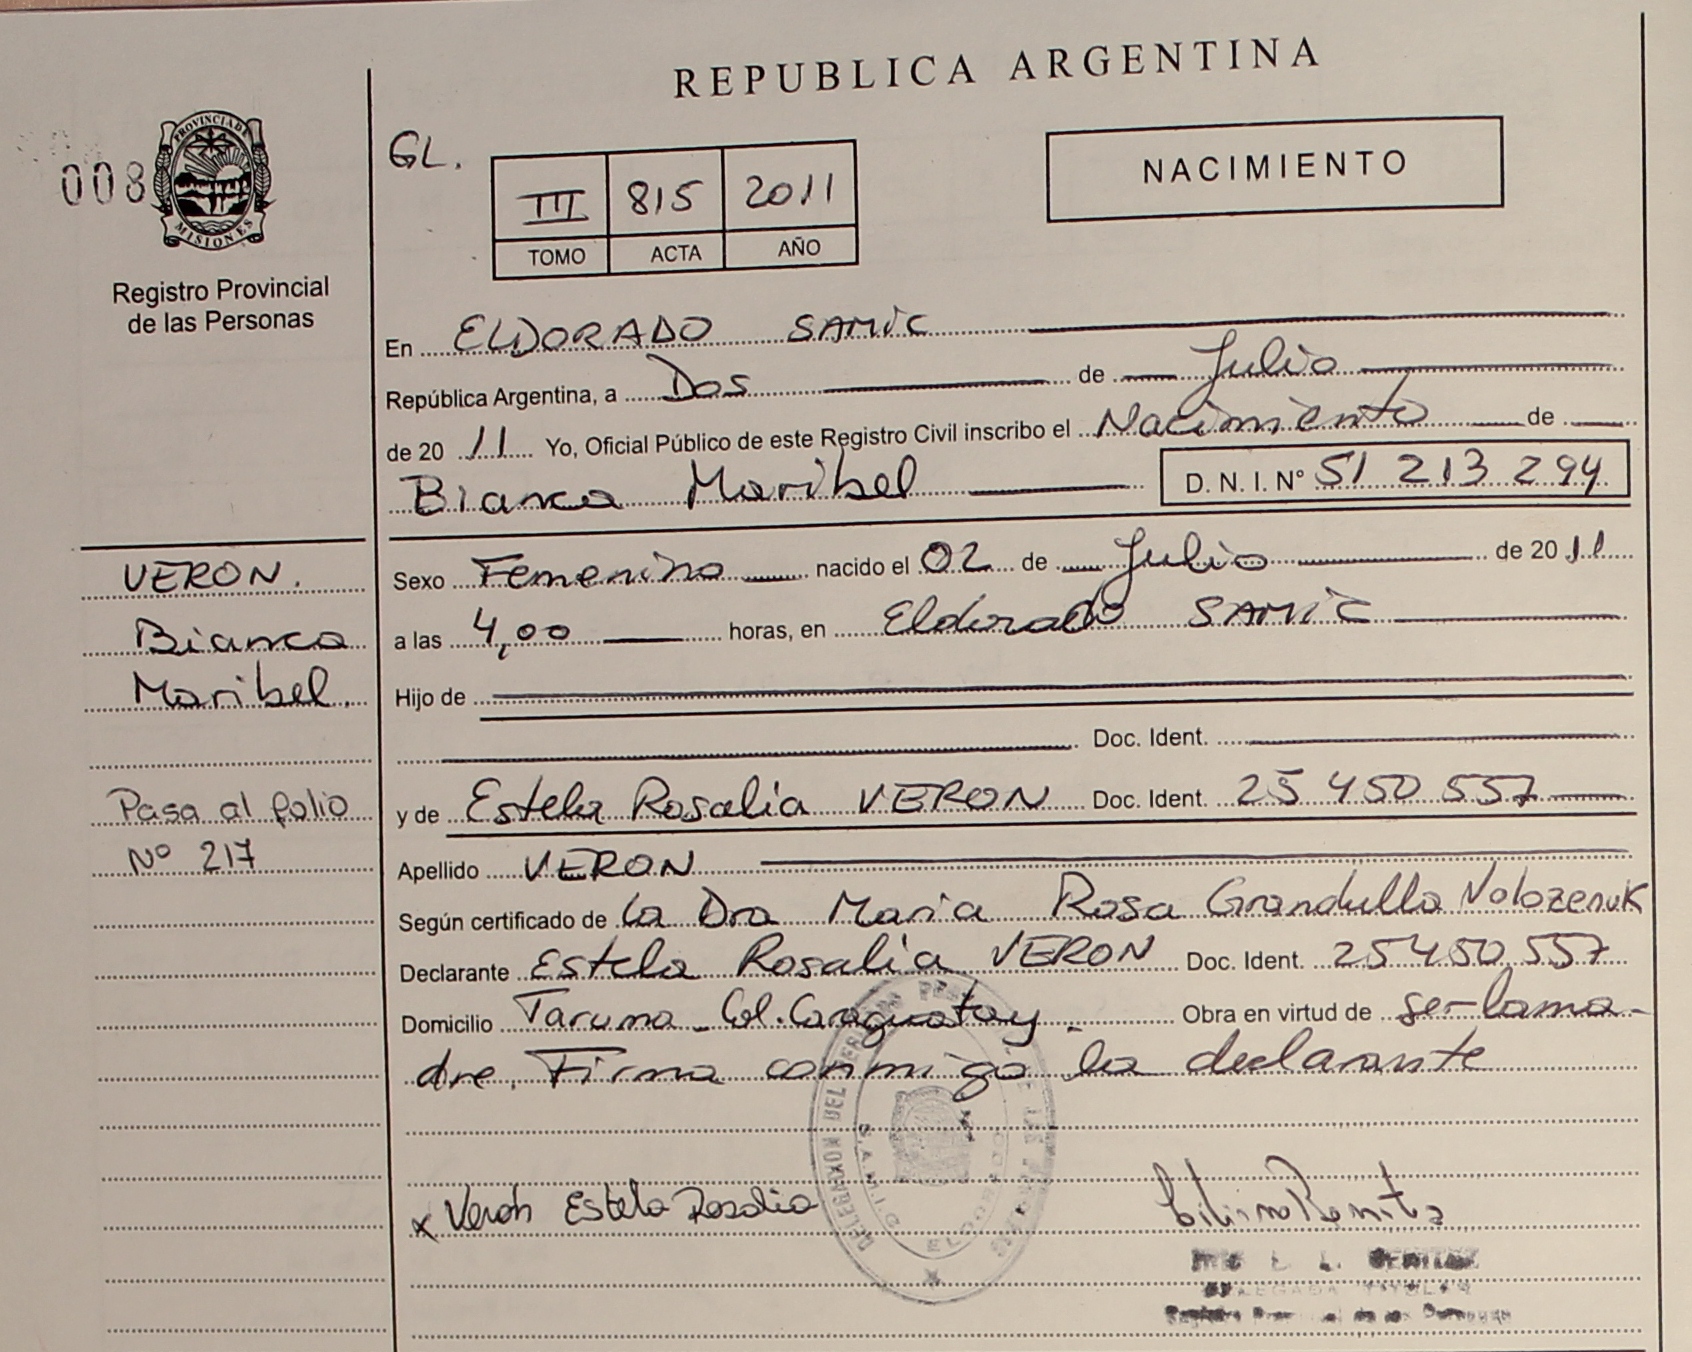 REPUBLICA ARGENTINA
008
PROVINCIA DE
MISIONES
Registro Provincial
de las Personas
GL.
III 815 2011
TOMO ACTA AÑO
NACIMIENTO
En ELDORADO SAMIC
República Argentina, a Dos de Julio
de 20 11 Yo, Oficial Público de este Registro Civil inscribo el Nacimiento de
Bianca Maribel D. N. I. Nº 51 213 294
VERON.
Bianca
Maribel.
Pasa al folio
Nº 217
Sexo Femenino nacido el 02 de Julio de 20 11
a las 4,00 horas, en Eldorado SAMIC
Hijo de
Doc. Ident.
y de Estela Rosalia VERON Doc. Ident. 25 450 557
Apellido VERON
Según certificado de la Dra Maria Rosa
Declarante Estela Rosalia VERON Doc. Ident. 25450557
Domicilio Taruma Col. Caraguatay. Obra en virtud de ser la ma-
dre. Firma conmigo la declarante
x Veron Estela Rosalia
ELDORADO